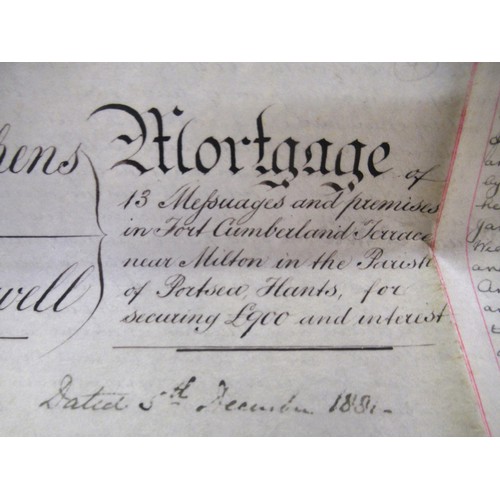 hens
well
Mortgage of
13 Meſsuages and premises
in Fort Cumberland Terrace
near Milton in the Parish
of Portsea, Hants, for
securing £900 and interest
Dated 5th December 188